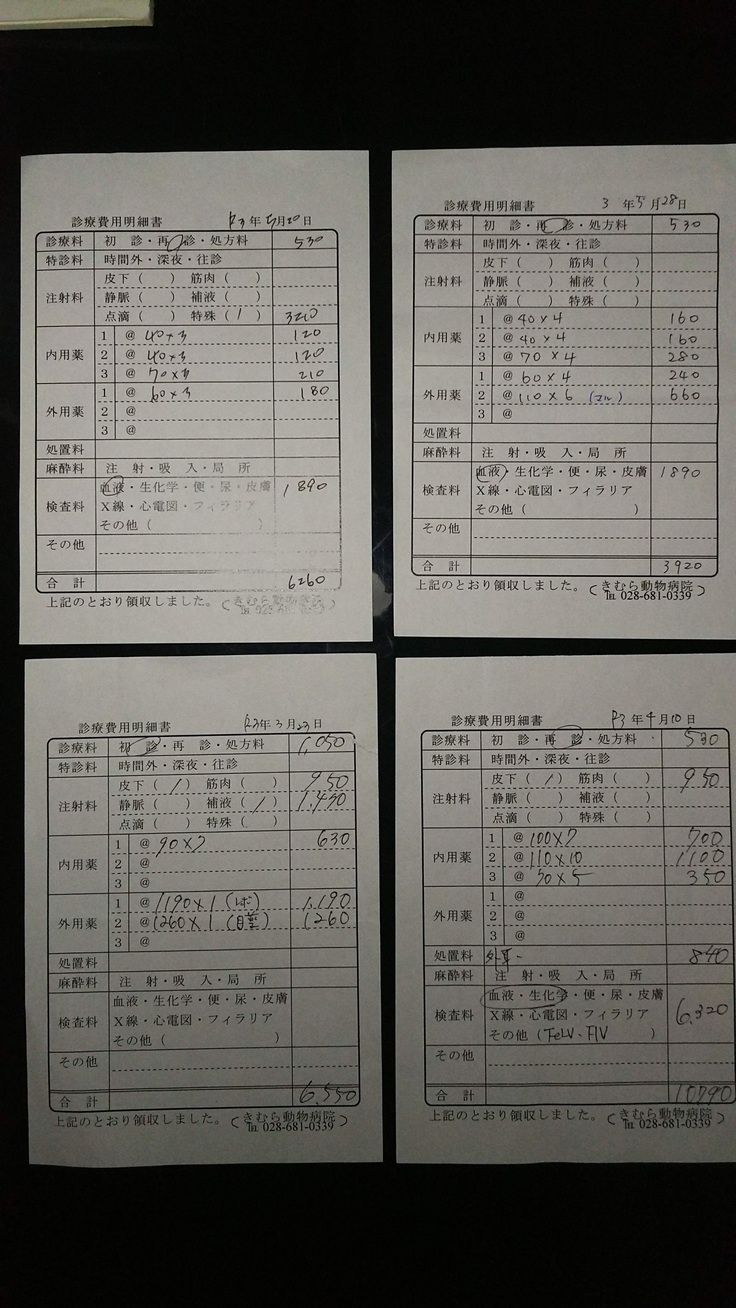 診療費用明細書 R3年5月20日
診療料 初 診・再 診・処方料 530
特診料 時間外・深夜・往診
注射料 皮下（ ） 筋肉（ ）
静脈（ ） 補液（ ）
点滴（ ） 特殊（1） 3210
内用薬 1 @ 40×3 120
2 @ 40×3 120
3 @ 70×3 210
外用薬 1 @ 60×3 180
2 @
3 @
処置料
麻酔料 注 射・吸 入・局 所
検査料 血液・生化学・便・尿・皮膚 1890
X線・心電図・フィラリア
その他（ ）
その他
合 計 6260
上記のとおり領収しました。（きむら動物病院）
診療費用明細書 3 年5月28日
診療料 初 診・再 診・処方料 530
特診料 時間外・深夜・往診
注射料 皮下（ ） 筋肉（ ）
静脈（ ） 補液（ ）
点滴（ ） 特殊（ ）
内用薬 1 @ 40×4 160
2 @ 40×4 160
3 @ 70×4 280
外用薬 1 @ 60×4 240
2 @ 110×6 660
3 @
処置料
麻酔料 注 射・吸 入・局 所
検査料 血液・生化学・便・尿・皮膚 1890
X線・心電図・フィラリア
その他（ ）
その他
合 計 3920
上記のとおり領収しました。（きむら動物病院）
℡ 028-681-0339
診療費用明細書 R3年3月23日
診療料 初 診・再 診・処方料 1,050
特診料 時間外・深夜・往診
注射料 皮下（/） 筋肉（ ） 950
静脈（ ） 補液（/） 1,430
点滴（ ） 特殊（ ）
内用薬 1 @ 90×7 630
2 @
3 @
外用薬 1 @ 1190×1 1,190
2 @ 1260×1（目薬） 1260
3 @
処置料
麻酔料 注 射・吸 入・局 所
検査料 血液・生化学・便・尿・皮膚
X線・心電図・フィラリア
その他（ ）
その他
合 計 6,550
上記のとおり領収しました。（きむら動物病院）
℡ 028-681-0339
診療費用明細書 R3年4月10日
診療料 初 診・再 診・処方料 530
特診料 時間外・深夜・往診
注射料 皮下（/） 筋肉（ ） 950
静脈（ ） 補液（ ）
点滴（ ） 特殊（ ）
内用薬 1 @ 100×7 700
2 @ 110×10 1100
3 @ 70×5 350
外用薬 1 @
2 @
3 @
処置料 外耳 840
麻酔料 注 射・吸 入・局 所
検査料 血液・生化学・便・尿・皮膚
X線・心電図・フィラリア 6,320
その他（FeLV・FIV ）
その他
合 計 10790
上記のとおり領収しました。（きむら動物病院）
℡ 028-681-0339